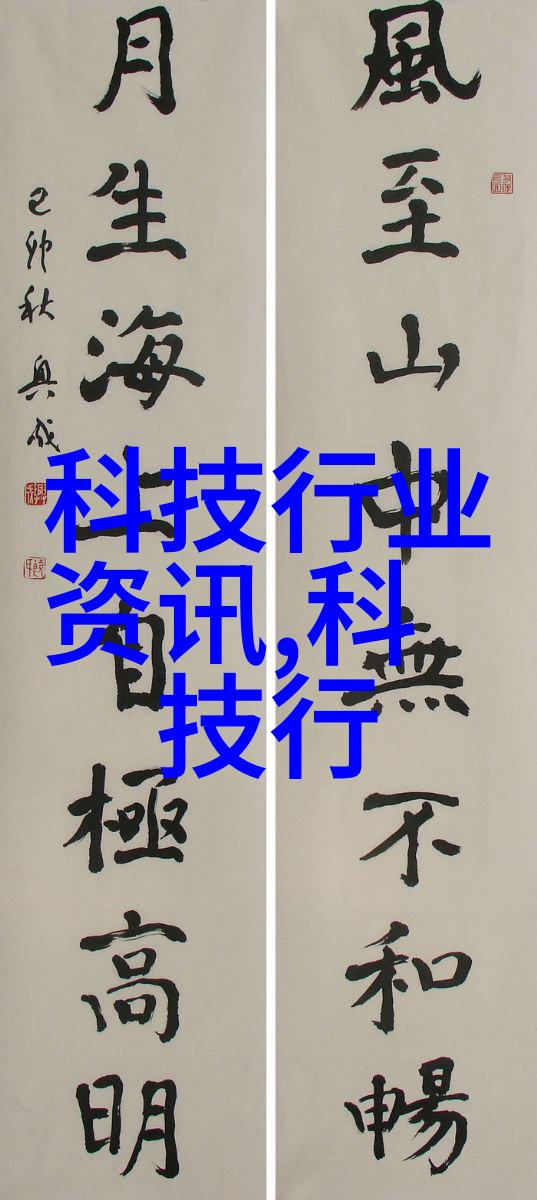 風至山中無不和暢
月生海上自極高明
己卯秋
科技行业
资讯,科
技行